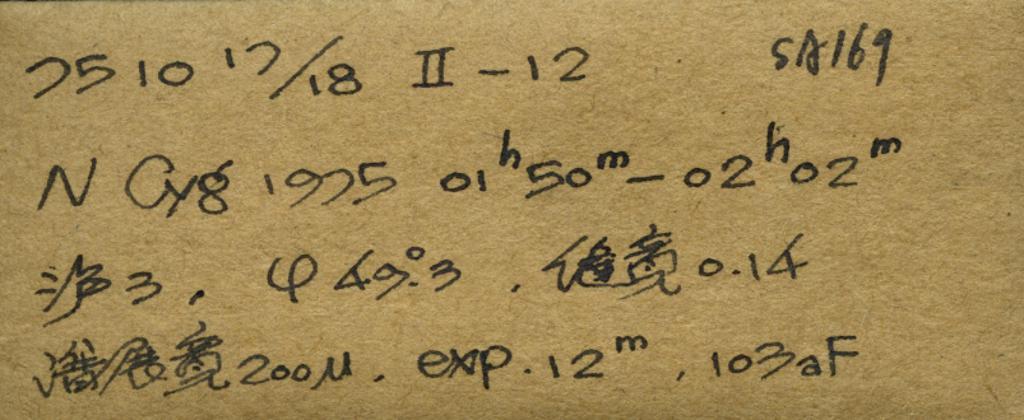 75 10 17/18 II - 12 SA169
N Cyg 1975 01ʰ50ᵐ - 02ʰ02ᵐ
3, φ 49°.3, 宽 0.14
展宽 200μ. exp. 12ᵐ, 103aF